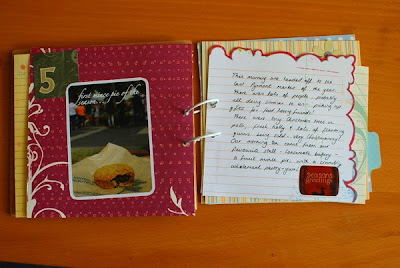 5
first mince pie of the
season...
This morning we headed off to the
last farmers market of the year.
There were lots of people, probably
all doing similar to us - picking up
gifts for food loving friends!
There were tiny Christmas trees in
pots, fresh holly & lots of flaming
being sold. Very Christmassy!
Our morning tea came from our
favourite stall - Consumate bakery -
a fruit mince pie with a crumbly
wholemeal pastry - yum!
Seasons
Greetings